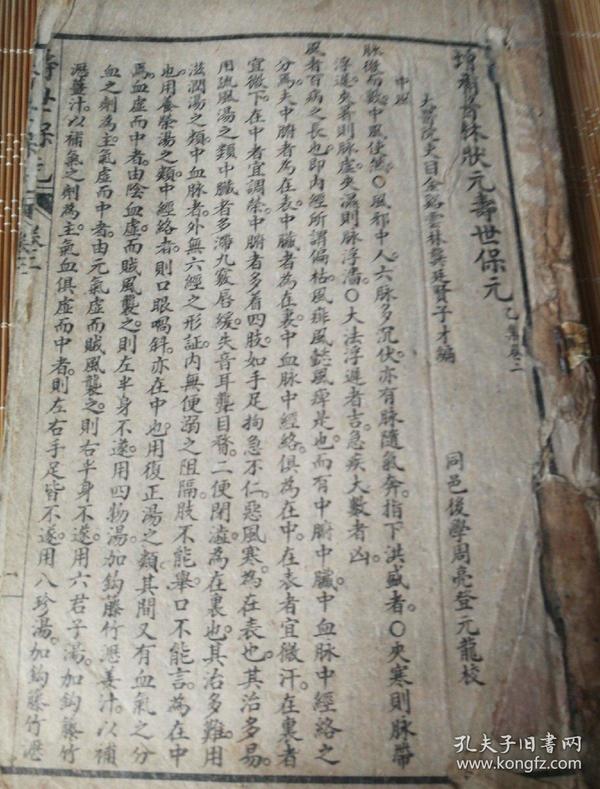 增補省脉狀元壽世保元 乙集卷二
太醫院吏目金谿雲林龔廷賢子才編
同邑後學周亮登元龍校
中風
脉微而數中風使然〇風邪中人六脉多沉伏亦有脉隨氣奔指下洪盛者〇夾寒則脉帶
浮遲夾暑則脉虛夾濕則脉浮濇〇大法浮遲者吉急疾大數者凶
風者百病之長也即内經所謂偏枯風痱風懿風痺是也而有中腑中臟中血脉中經絡之
分焉夫中腑者為在表中臟者為在裏中血脉中經絡俱為在中在表者宜微汗在裏者
宜微下在中者宜調榮中腑者多着四肢如手足拘急不仁惡風寒為在表也其治多易
用疏風湯之類中臟者多滯九竅唇緩失音耳聾目瞀二便閉澁為在裏也其治多難用
滋潤湯之類中血脉者外無六經之形証内無便溺之阻隔肢不能舉口不能言為在中
也用養榮湯之類中經絡者則口眼喎斜亦在中也用復正湯之類其間又有血氣之分
焉血虛而中者由陰血虛而賊風襲之則左半身不遂用四物湯加鈎藤竹瀝姜汁以補
血之劑為主氣虛而中者由元氣虛而賊風襲之則右半身不遂用六君子湯加鈎藤竹
瀝薑汁以補氣之劑為主氣血俱虛而中者則左右手足皆不遂用八珍湯加鈎藤竹瀝
壽世保元
卷二
一
孔夫子旧书网
www.kongfz.com